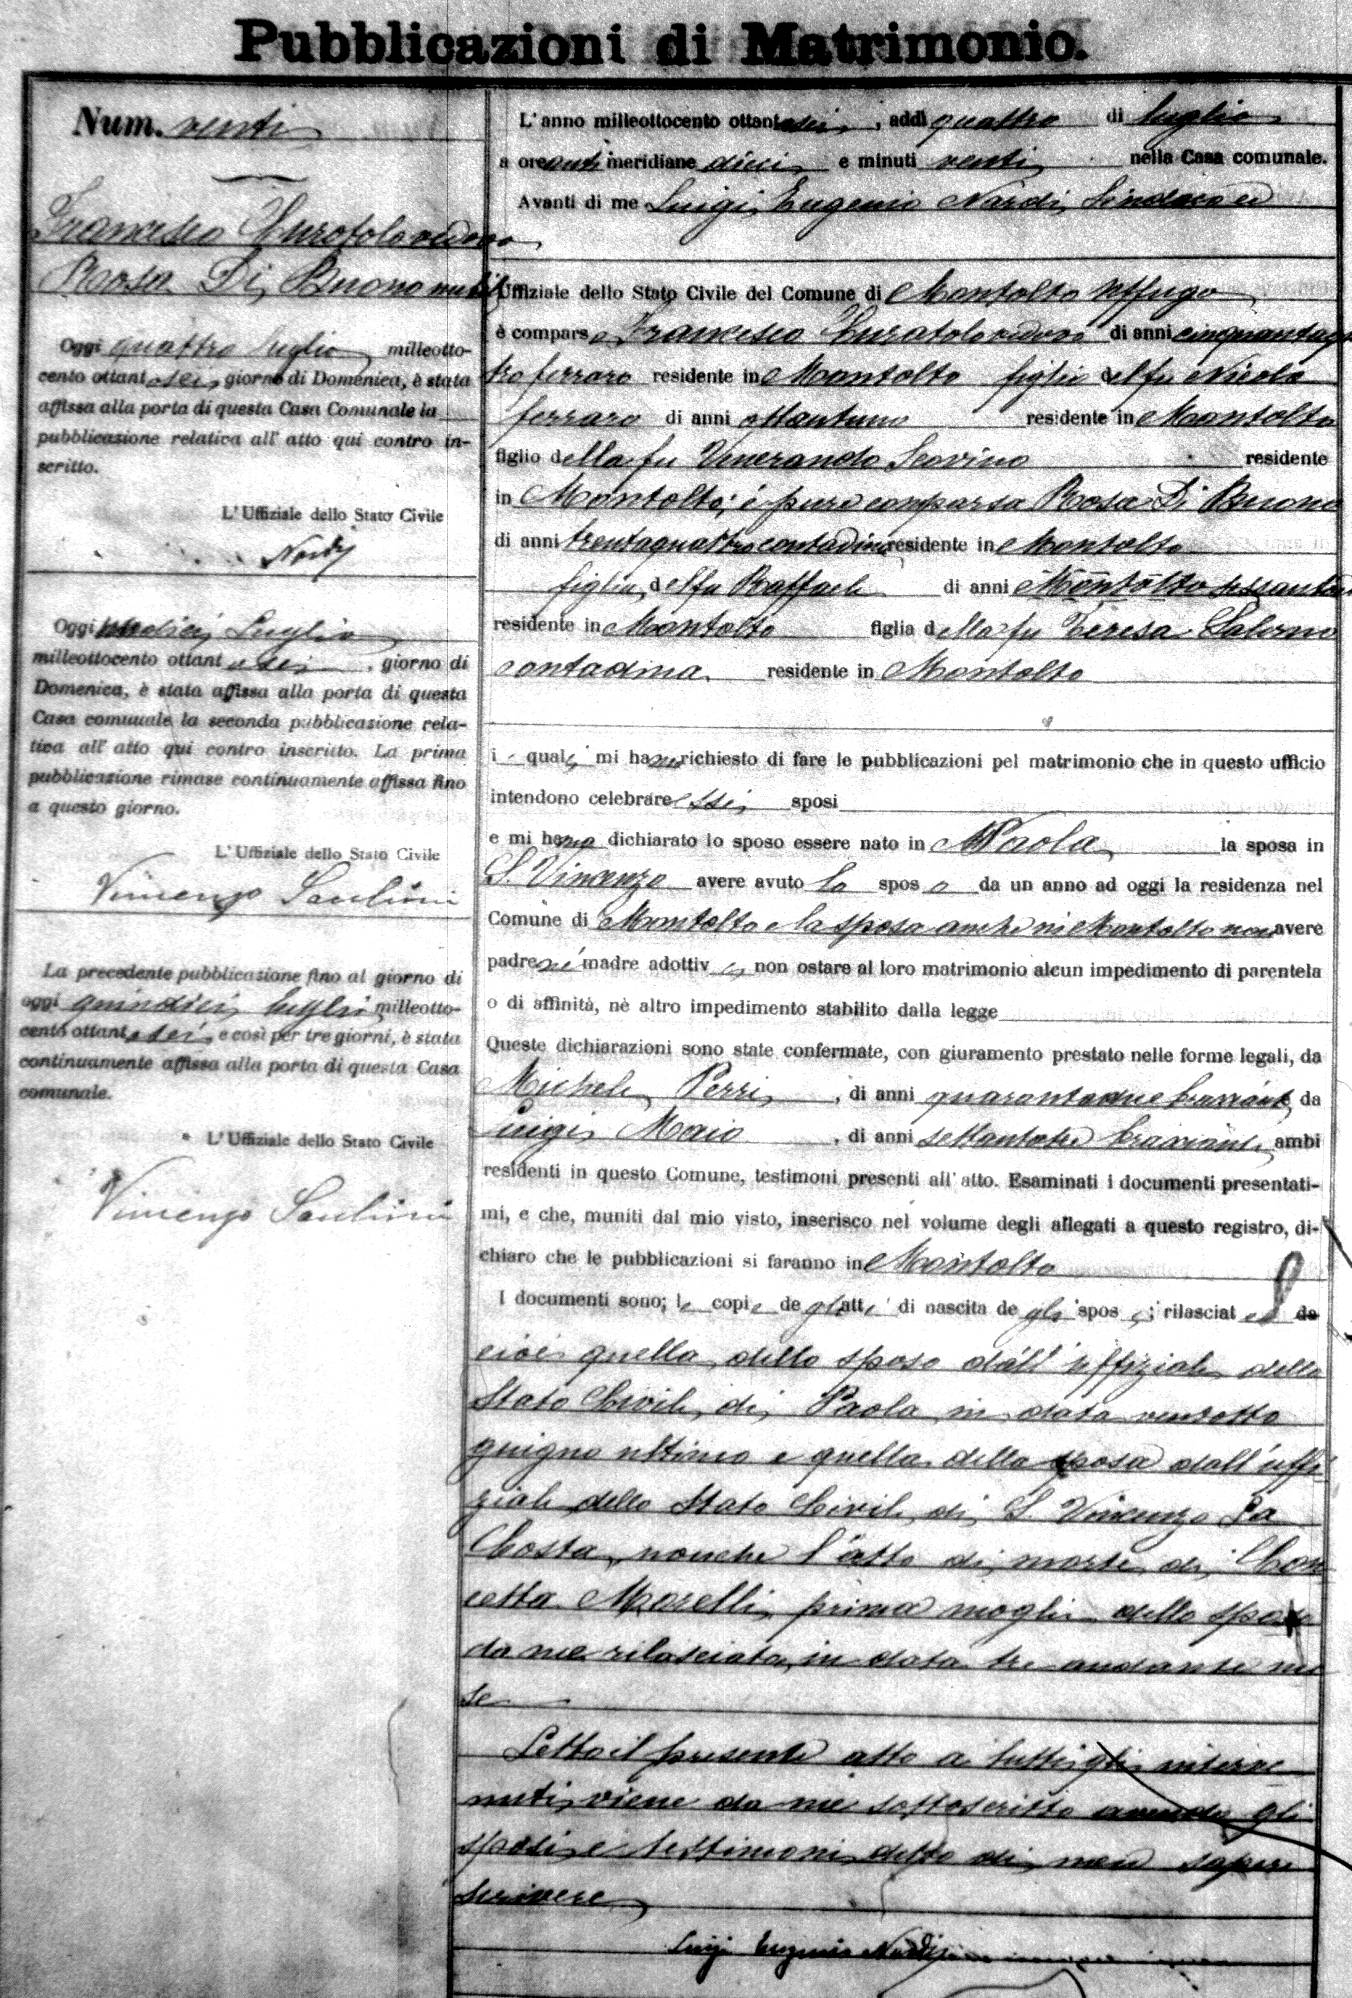 Pubblicazioni di Matrimonio.
Num. venti
Francesco Curatolo vedovo
Rosa Di Buono nubile
Oggi quattro luglio milleotto-
cento ottantasei, giorno di Domenica, è stata
affissa alla porta di questa Casa Comunale la
pubblicazione relativa all' atto qui contro in-
scritto.
L' Uffiziale dello Stato Civile
Nardi
Oggi undici Luglio
milleottocento ottantasei, giorno di
Domenica, è stata affissa alla porta di questa
Casa comunale la seconda pubblicazione rela-
tiva all' atto qui contro inscritto. La prima
pubblicazione rimase continuamente affissa fino
a questo giorno.
L' Uffiziale dello Stato Civile
Vincenzo
La precedente pubblicazione fino al giorno di
oggi quindici luglio milleotto-
cento ottantasei, e così per tre giorni, è stata
continuamente affissa alla porta di questa Casa
comunale.
L' Uffiziale dello Stato Civile
Vincenzo
L' anno milleottocento ottantasei, addì quattro di luglio
a ore antimeridiane dieci e minuti venti nella Casa comunale.
Avanti di me Luigi Eugenio Nardi, Sindaco ed
Uffiziale dello Stato Civile del Comune di Montalto Uffugo
è comparso Francesco Curatolo vedovo di anni cinquantaquat
tro ferraro residente in Montalto figlio del fu Nicola
ferraro di anni ottantuno residente in Montalto
figlio della fu Veneranda residente
in Montalto; è pure comparsa Rosa Di Buono
di anni trentaquattro contadina residente in Montalto
figlia del fu Raffaele di anni Montalto
residente in Montalto figlia della fu Teresa Salerno
contadina residente in Montalto
i quali mi hanno richiesto di fare le pubblicazioni pel matrimonio che in questo ufficio
intendono celebrare essi sposi
e mi hanno dichiarato lo sposo essere nato in Paola la sposa in
S. Vincenzo avere avuto lo sposo da un anno ad oggi la residenza nel
Comune di Montalto e la sposa anche in Montalto non avere
padre nè madre adottivi, non ostare al loro matrimonio alcun impedimento di parentela
o di affinità, nè altro impedimento stabilito dalla legge
Queste dichiarazioni sono state confermate, con giuramento prestato nelle forme legali, da
Michele Perri, di anni quarantadue bracciante, da
Luigi Maio, di anni settantatre bracciante, ambi
residenti in questo Comune, testimoni presenti all' atto. Esaminati i documenti presentati-
mi, e che, muniti dal mio visto, inserisco nel volume degli allegati a questo registro, di-
chiaro che le pubblicazioni si faranno in Montalto
I documenti sono; le copie degli atti di nascita degli sposi; rilasciate da
cioè quella dello sposo dall' uffiziale dello
Stato Civile di Paola in data ventotto
giugno ultimo e quella della sposa dall' uffi-
ziale dello Stato Civile di S. Vincenzo La
Costa, nonchè l'atto di morte di Con
cetta Morelli, prima moglie dello sposo
da me rilasciata in data tre andante me
se
Letto il presente atto a tutti gli interve
nuti, viene da me sottoscritto avendo gli
sposi e testimoni detto di non sapere
scrivere
Luigi Eugenio Nardi